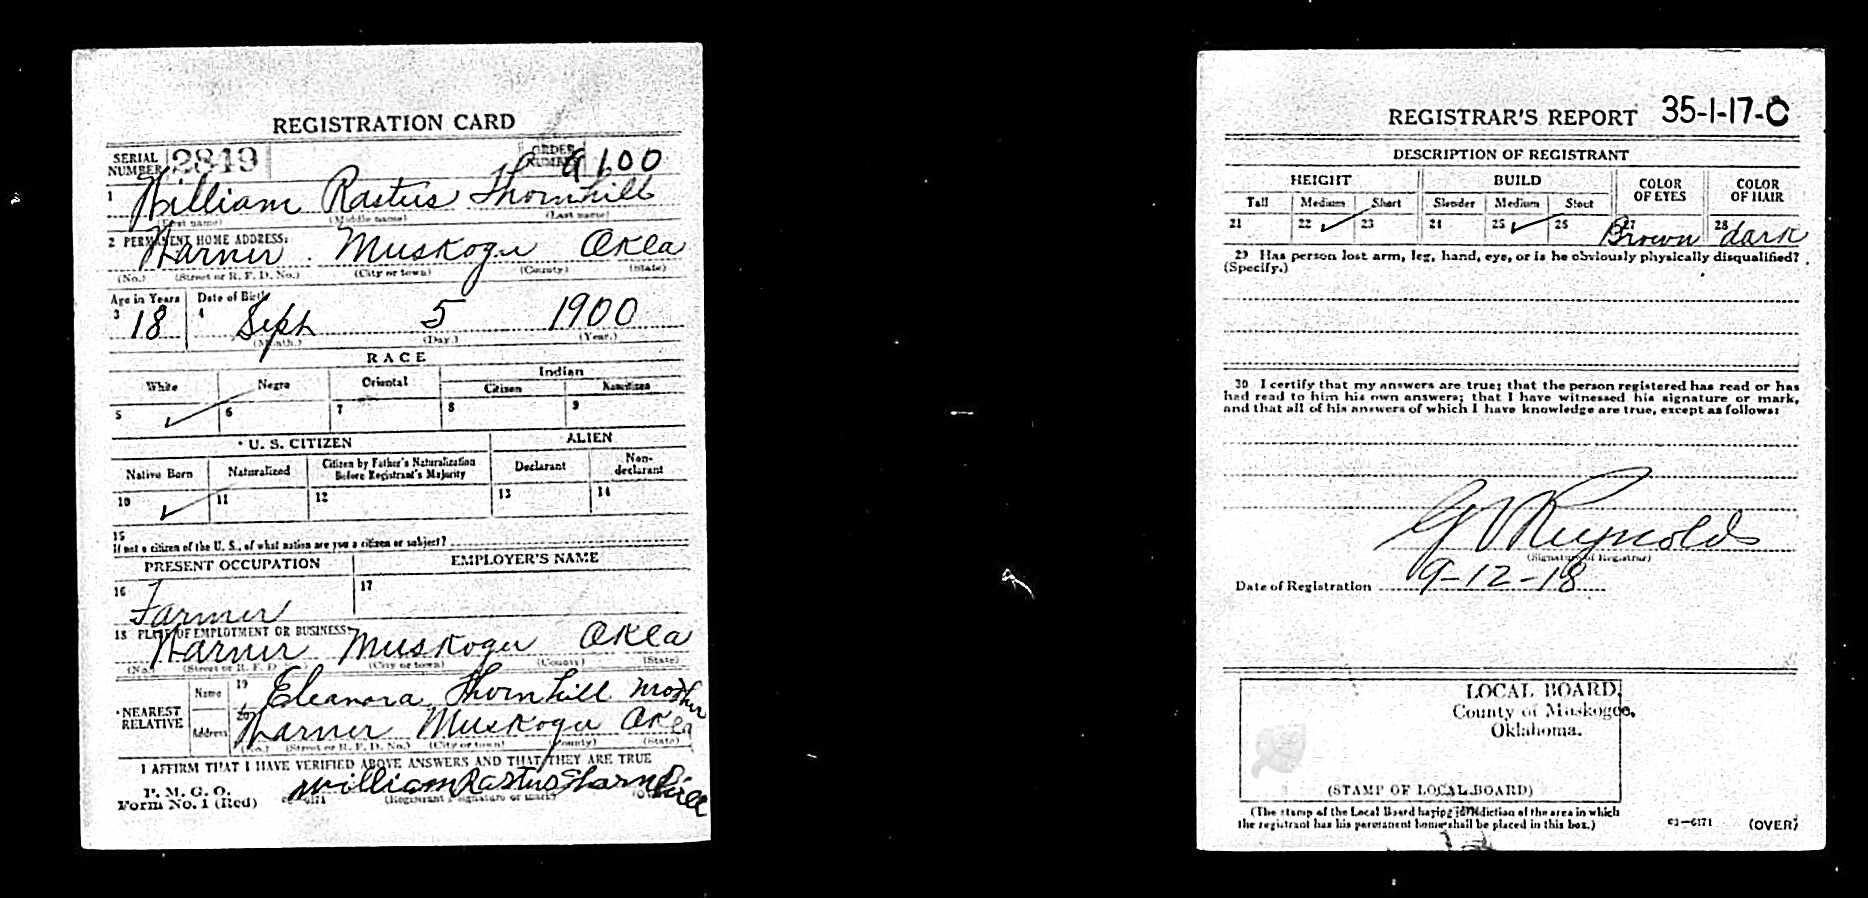 REGISTRATION CARD
SERIAL NUMBER 2849 ORDER NUMBER A 100
1 William Rastus Thornhill
(First name) (Middle name) (Last name)
2 PERMANENT HOME ADDRESS:
Warner Muskogee Okla
(No.) (Street or R. F. D. No.) (City or town) (County) (State)
Age in Years Date of Birth
3 18 4 Sept 5 1900
(Month.) (Day.) (Year.)
RACE
White Negro Oriental Indian
Citizen Noncitizen
5 ✓ 6 7 8 9
U. S. CITIZEN ALIEN
Native Born Naturalized Citizen by Father's Naturalization Before Registrant's Majority Declarant Non-declarant
10 ✓ 11 12 13 14
15
If not a citizen of the U. S., of what nation are you a citizen or subject?
PRESENT OCCUPATION EMPLOYER'S NAME
16 Farmer 17
18 PLACE OF EMPLOYMENT OR BUSINESS:
Warner Muskogee Okla
(No.) (Street or R. F. D. (City or town) (County) (State)
NEAREST RELATIVE Name 19 Eleanora Thornhill Mother
Address 20 Warner Muskogee Okla
(No.) (Street or R. F. D. No.) (City or town) (County) (State)
I AFFIRM THAT I HAVE VERIFIED ABOVE ANSWERS AND THAT THEY ARE TRUE
P. M. G. O.
Form No. 1 (Red) William Rastus Thornhill
(Registrant's signature or mark)
REGISTRAR'S REPORT 35-1-17-C
DESCRIPTION OF REGISTRANT
HEIGHT BUILD COLOR OF EYES COLOR OF HAIR
Tall Medium Short Slender Medium Stout
21 22 ✓ 23 24 25 ✓ 26 27 Brown 28 dark
29 Has person lost arm, leg, hand, eye, or is he obviously physically disqualified?
(Specify.)
30 I certify that my answers are true; that the person registered has read or has
had read to him his own answers; that I have witnessed his signature or mark,
and that all of his answers of which I have knowledge are true, except as follows:
G V Reynolds
(Signature of Registrar)
Date of Registration 9-12-18
LOCAL BOARD,
County of Muskogee,
Oklahoma.
(STAMP OF LOCAL BOARD)
(The stamp of the Local Board having jurisdiction of the area in which
the registrant has his permanent home shall be placed in this box.)
03—6171 (OVER)